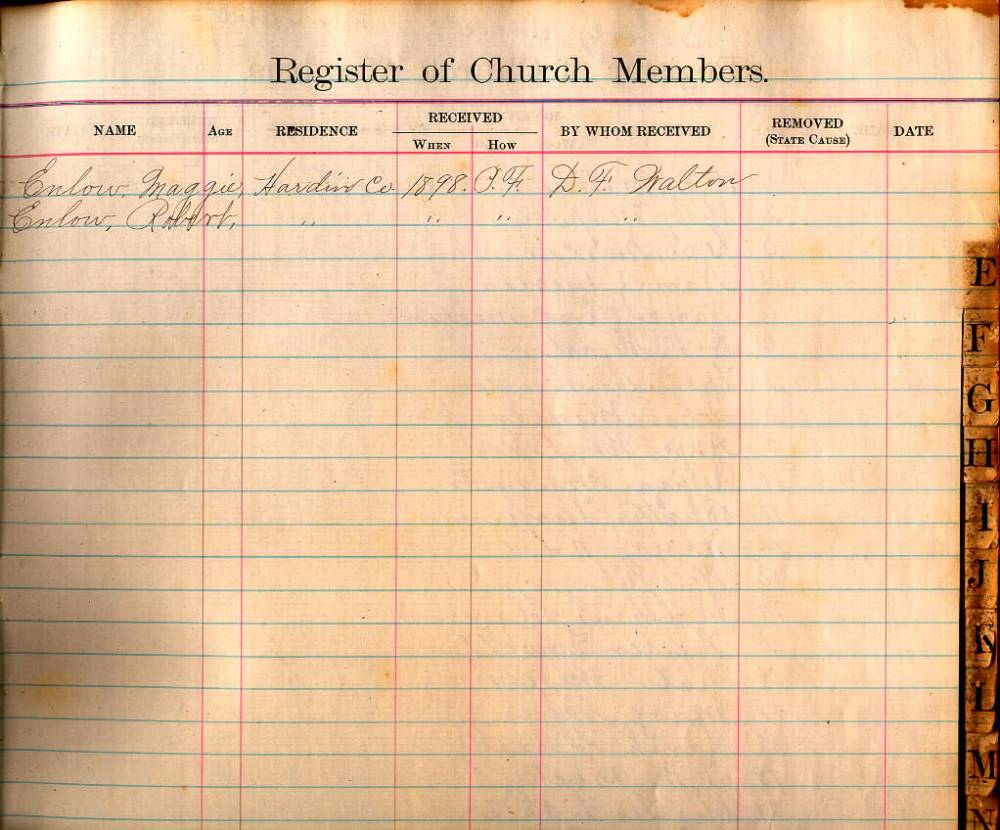 Register of Church Members.
NAME AGE RESIDENCE RECEIVED WHEN HOW BY WHOM RECEIVED REMOVED (STATE CAUSE) DATE
Enlow, Maggie, Hardin Co. 1898. P.F. D. F. Walton
Enlow, Robert, " " " "
E
F
G
H
I
J
K
L
M
N